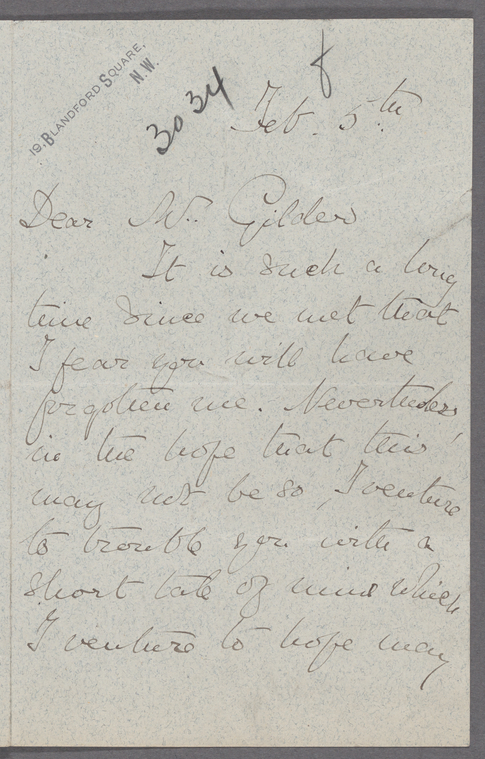 19, BLANDFORD SQUARE,
N.W.
3034
8
Feb. 5th
Dear Mr. Gilder
It is such a long
time since we met that
I fear you will have
forgotten me. Nevertheless,
in the hope that this
may not be so, I venture
to trouble you with a
short tale of mine which
I venture to hope may